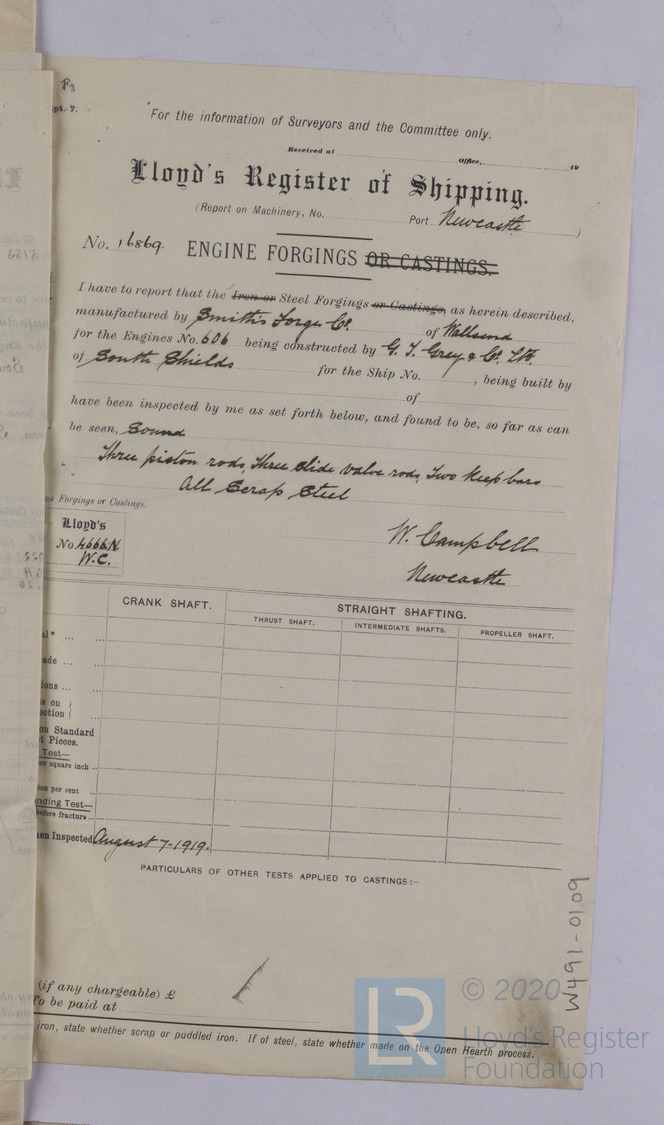 F2
pt. 7.
For the information of Surveyors and the Committee only.
Received at Office, 19
Lloyd's Register of Shipping.
(Report on Machinery, No. Port Newcastle )
No. 16869. ENGINE FORGINGS OR CASTINGS.
I have to report that the Iron or Steel Forgings or Castings, as herein described,
manufactured by Smith's Forge Co. of Wallsend
for the Engines No. 606 being constructed by G. T. Grey & Co. Ltd.
of South Shields for the Ship No. , being built by
of
have been inspected by me as set forth below, and found to be, so far as can
be seen, Sound
Three piston rods, Three slide valve rods, Two keep bars
All Scrap Steel
Forgings or Castings.
Lloyd's
No. 4666 N.
W.C.
W. Campbell
Newcastle
CRANK SHAFT. STRAIGHT SHAFTING.
THRUST SHAFT. INTERMEDIATE SHAFTS. PROPELLER SHAFT.
al* ... ...
ade ... ...
ions ... ...
s on
ection ...
on Standard
t Pieces.
Test—
er square inch ...
on per cent ...
nding Test—
before fracture ...
en Inspected August 7-1919.
PARTICULARS OF OTHER TESTS APPLIED TO CASTINGS:—
(if any chargeable) £
To be paid at
iron, state whether scrap or puddled iron. If of steel, state whether made on the Open Hearth process.
W491-0109
LR
© 2020
Lloyd's Register
Foundation